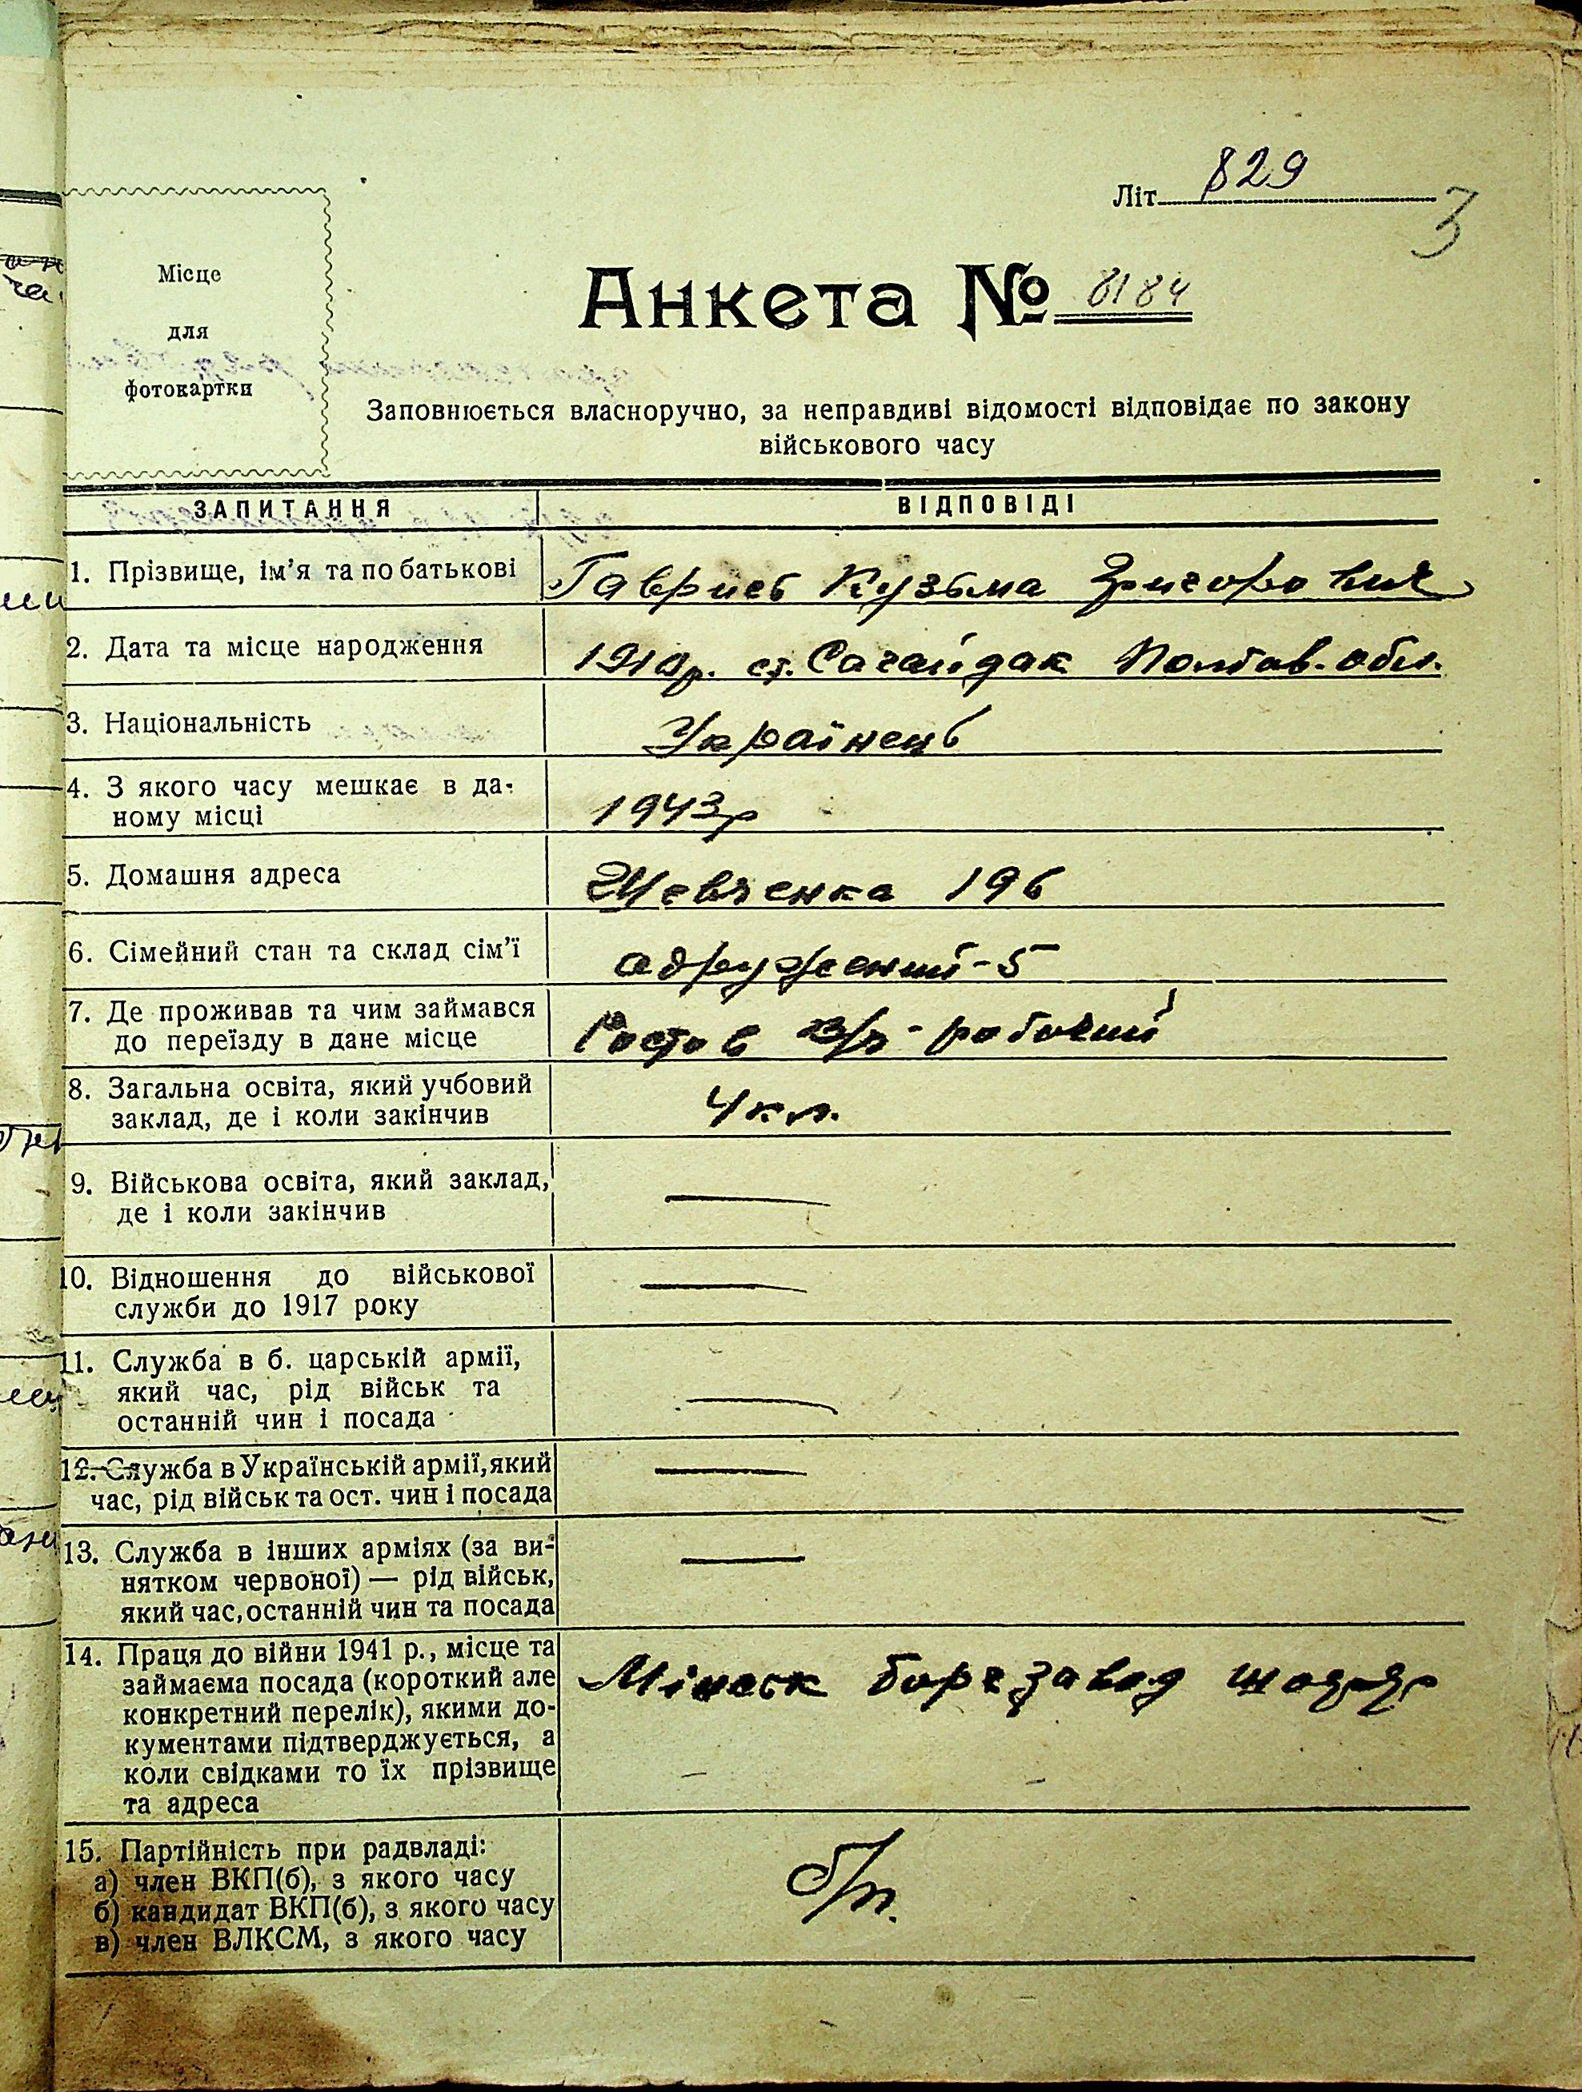 Літ 829
3
Місце
для
фотокартки
Анкета № 8184
Заповнюється власноручно, за неправдиві відомості відповідає по закону
військового часу
ЗАПИТАННЯ ВІДПОВІДІ
1. Прізвище, ім’я та по батькові Кузьма Григорович
2. Дата та місце народження 1910р. ст. Сагайдак Полтав. обл.
3. Національність Українець
4. З якого часу мешкає в да-
ному місці 1943р
5. Домашня адреса Шевченка 196
6. Сімейний стан та склад сім’ї одружений - 5
7. Де проживав та чим займався
до переїзду в дане місце Ростов з/д - робочий
8. Загальна освіта, який учбовий
заклад, де і коли закінчив 4 кл.
9. Військова освіта, який заклад,
де і коли закінчив —
10. Відношення до військової
служби до 1917 року —
11. Служба в б. царській армії,
який час, рід військ та
останній чин і посада —
12. Служба в Українській армії, який
час, рід військ та ост. чин і посада —
13. Служба в інших арміях (за ви-
нятком червоної) — рід військ,
який час, останній чин та посада —
14. Праця до війни 1941 р., місце та
займаєма посада (короткий але
конкретний перелік), якими до-
кументами підтверджується, а
коли свідками то їх прізвище
та адреса
15. Партійність при радвладі:
а) член ВКП(б), з якого часу
б) кандидат ВКП(б), з якого часу
в) член ВЛКСМ, з якого часу
б/п.